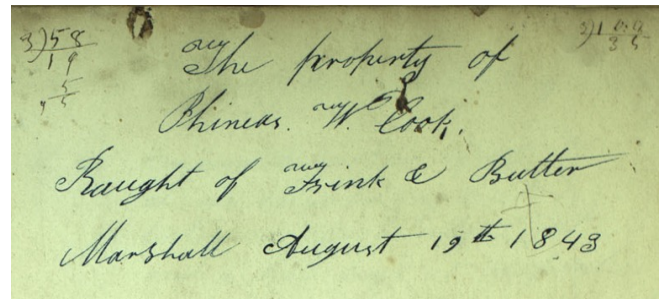 The property of
Phineas. W. Cook.
Baught of Frink & Butler
Marshall August 19th 1843